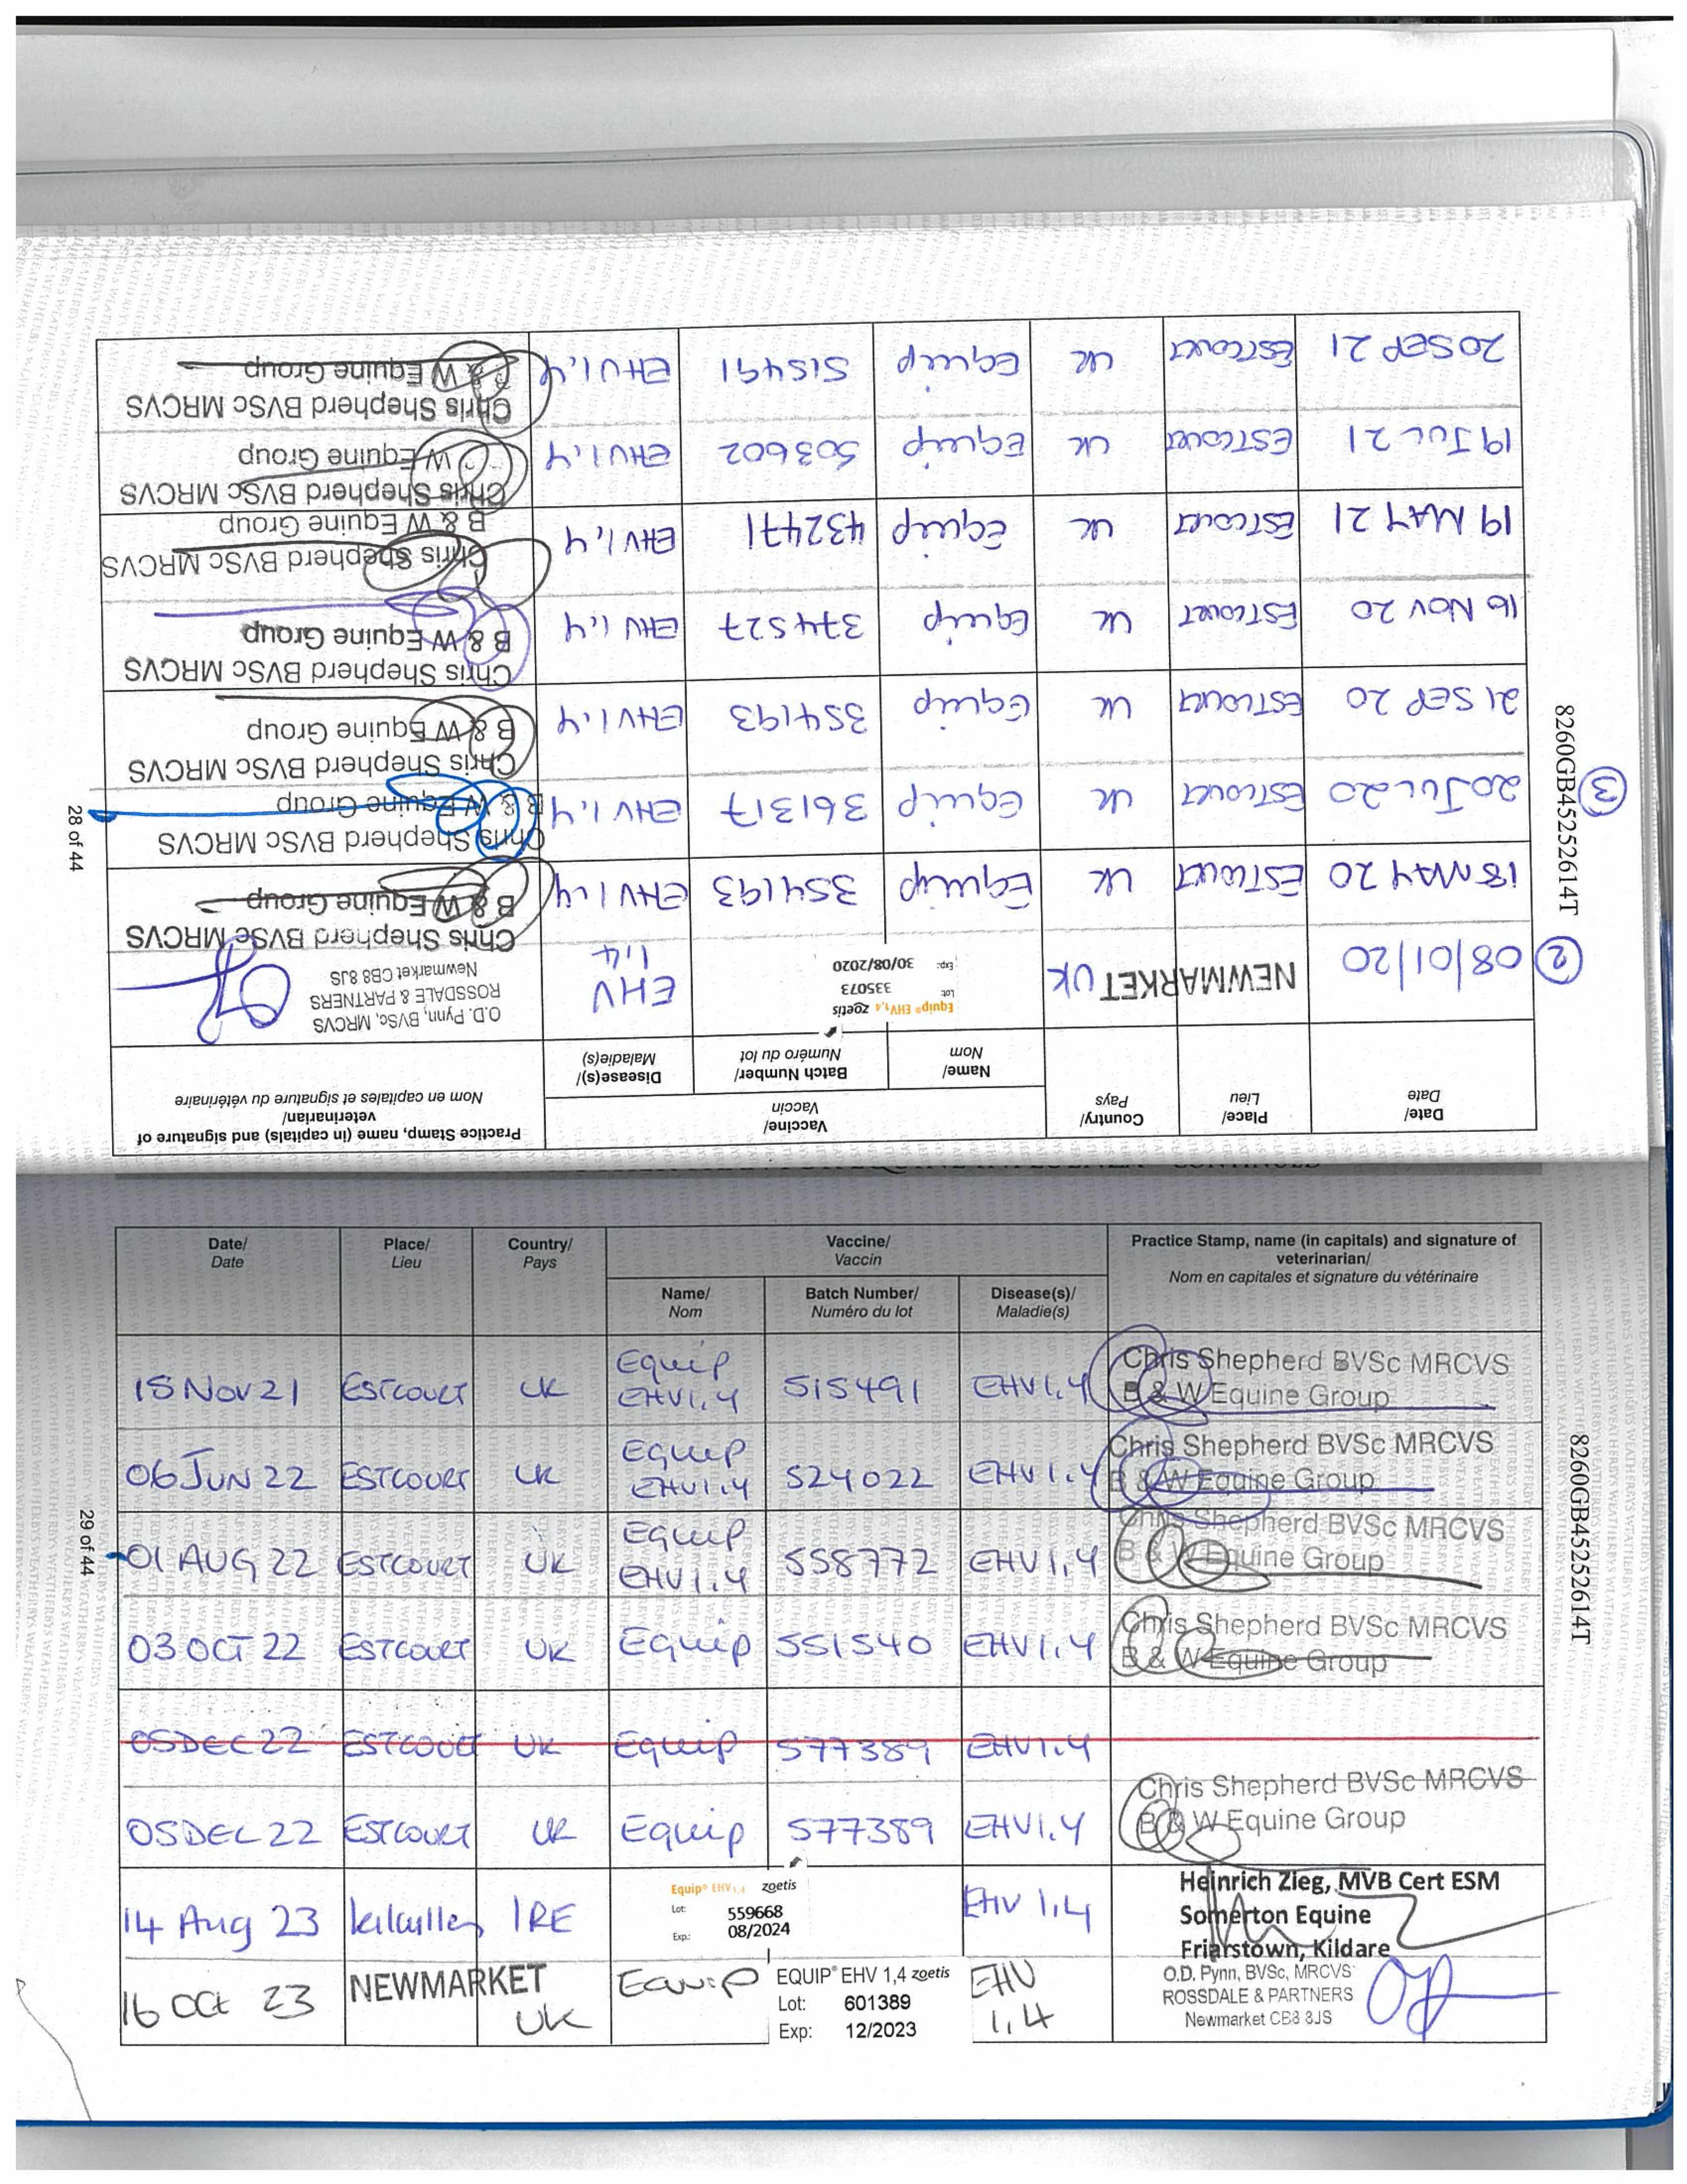 Date/
Date
Place/
Lieu
Country/
Pays
Vaccine/
Vaccin
Name/
Nom
Batch Number/
Numéro du lot
Disease(s)/
Maladie(s)
Practice Stamp, name (in capitals) and signature of
veterinarian/
Nom en capitales et signature du vétérinaire
② 08/01/20 NEWMARKET UK
Equip® EHV1,4 zoetis
Lot: 335073
Exp: 30/08/2020
EHV
1,4
O.D. Pynn, BVSc, MRCVS
ROSSDALE & PARTNERS
Newmarket CB8 8JS
18 MAY 20 ESTCOURT UK Equip 354193 EHV 1.4
Chris Shepherd BVSc MRCVS
B & W Equine Group
③ 20 JUL 20 ESTCOURT UK Equip 361317 EHV 1.4
Chris Shepherd BVSc MRCVS
B & W Equine Group
21 SEP 20 ESTCOURT UK Equip 354193 EHV 1.4
Chris Shepherd BVSc MRCVS
B & W Equine Group
16 NOV 20 ESTCOURT UK Equip 374527 EHV 1.4
Chris Shepherd BVSc MRCVS
B & W Equine Group
19 MAY 21 ESTCOURT UK Equip 432471 EHV 1,4
Chris Shepherd BVSc MRCVS
B & W Equine Group
19 JUL 21 ESTCOURT UK Equip 503602 EHV 1.4
Chris Shepherd BVSc MRCVS
W Equine Group
20 SEP 21 ESTCOURT UK Equip 515491 EHV 1,4
Chris Shepherd BVSc MRCVS
& W Equine Group
8260GB45252614T
28 of 44
Date/
Date
Place/
Lieu
Country/
Pays
Vaccine/
Vaccin
Name/
Nom
Batch Number/
Numéro du lot
Disease(s)/
Maladie(s)
Practice Stamp, name (in capitals) and signature of
veterinarian/
Nom en capitales et signature du vétérinaire
15 NOV 21 ESTCOURT UK Equip EHV1.4 515491 EHV1.4
Chris Shepherd BVSc MRCVS
B & W Equine Group
06 JUN 22 ESTCOURT UK Equip EHV1.4 524022 EHV1.4
Chris Shepherd BVSc MRCVS
B & W Equine Group
01 AUG 22 ESTCOURT UK Equip EHV1.4 558772 EHV1,4
Chris Shepherd BVSc MRCVS
B & W Equine Group
03 OCT 22 ESTCOURT UK Equip 551540 EHV1.4
Chris Shepherd BVSc MRCVS
B & W Equine Group
05 DEC 22 ESTCOURT UK Equip 577389 EHV1.4
05 DEC 22 ESTCOURT UK Equip 577389 EHV1.4
Chris Shepherd BVSc MRCVS
B & W Equine Group
14 Aug 23 IRE
Equip® EHV1,4 zoetis
Lot: 559668
Exp.: 08/2024
EHV 1,4
Heinrich Zieg, MVB Cert ESM
Somerton Equine
Friarstown, Kildare
16 Oct 23 NEWMARKET UK Equip
EQUIP® EHV 1,4 zoetis
Lot: 601389
Exp: 12/2023
EHV
1,4
O.D. Pynn, BVSc, MRCVS
ROSSDALE & PARTNERS
Newmarket CB8 8JS
8260GB45252614T
29 of 44